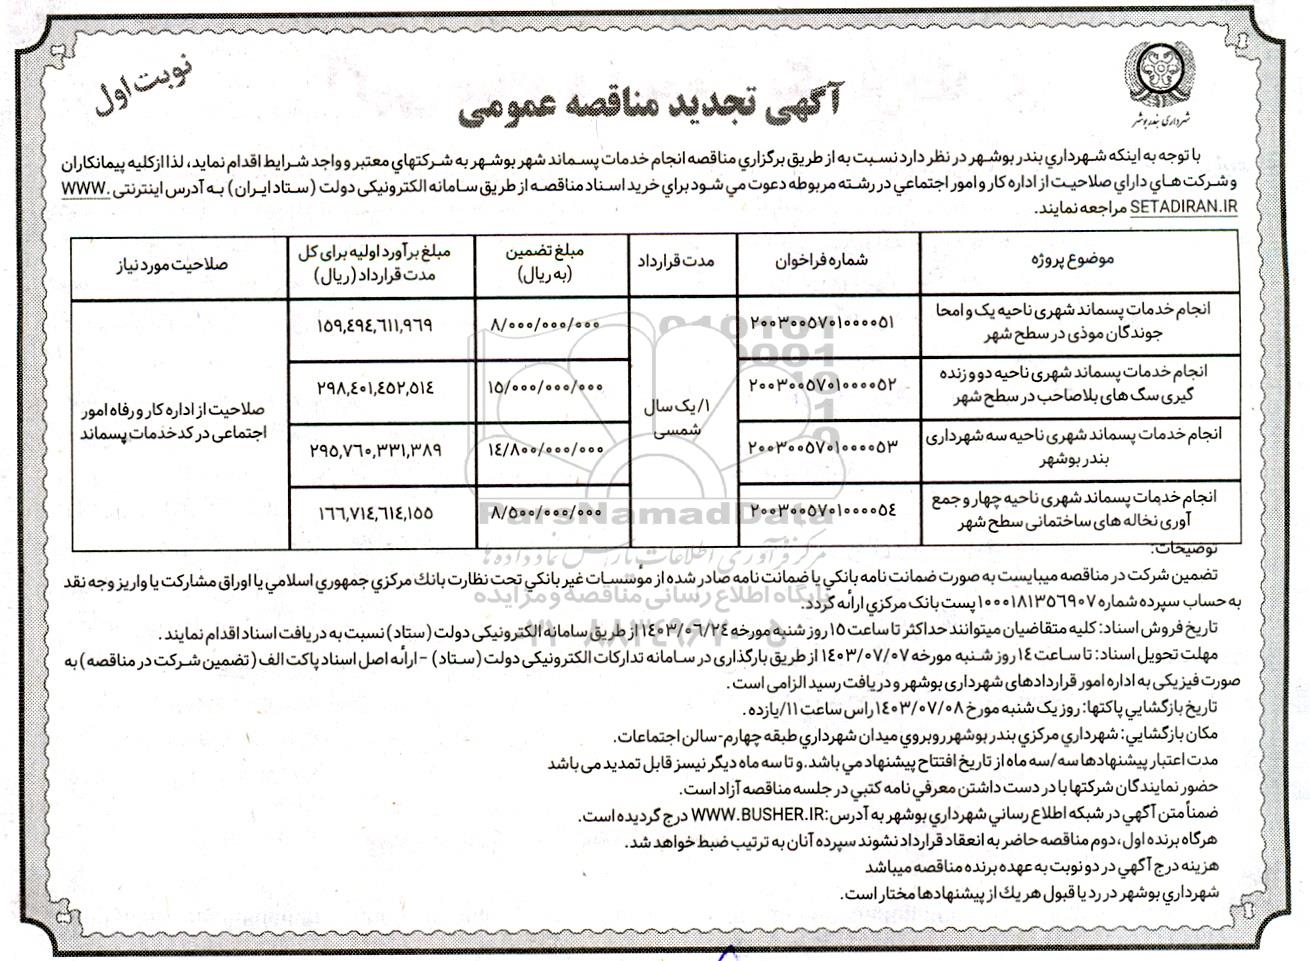 نوبت اول
شهرداری بندر بوشهر
آگهی تجدید مناقصه عمومی
با توجه به اینکه شهرداري بندر بوشهر در نظر دارد نسبت به از طریق برگزاري مناقصه انجام خدمات پسماند شهر بوشهر به شرکتهاي معتبر و واجد شرایط اقدام نماید، لذا از کلیه پیمانکاران
و شرکت هاي داراي صلاحیت از اداره کار و امور اجتماعي در رشته مربوطه دعوت مي شود براي خرید اسناد مناقصه از طریق سامانه الکترونیکی دولت (ستاد ایران) به آدرس اینترنتی WWW.
SETADIRAN.IR مراجعه نمایند.
موضوع پروژه | شماره فراخوان | مدت قرارداد | مبلغ تضمین (به ریال) | مبلغ برآورد اولیه برای کل مدت قرارداد (ریال) | صلاحیت مورد نیاز
انجام خدمات پسماند شهری ناحیه یک و امحا جوندگان موذی در سطح شهر | ۲۰۰۳۰۰۵۷۰۱۰۰۰۰۵۱ | ۱/ یک سال شمسی | ۸/۰۰۰/۰۰۰/۰۰۰ | ۱۵۹,۴۹۴,۶۱۱,۹۶۹ | صلاحیت از اداره کار و رفاه امور اجتماعی در کد خدمات پسماند
انجام خدمات پسماند شهری ناحیه دو و زنده گیری سگ های بلاصاحب در سطح شهر | ۲۰۰۳۰۰۵۷۰۱۰۰۰۰۵۲ | ۱۵/۰۰۰/۰۰۰/۰۰۰ | ۲۹۸,۴۰۱,۴۵۲,۵۱۴
انجام خدمات پسماند شهری ناحیه سه شهرداری بندر بوشهر | ۲۰۰۳۰۰۵۷۰۱۰۰۰۰۵۳ | ۱۴/۸۰۰/۰۰۰/۰۰۰ | ۲۹۵,۷۶۰,۳۳۱,۳۸۹
انجام خدمات پسماند شهری ناحیه چهار و جمع آوری نخاله های ساختمانی سطح شهر | ۲۰۰۳۰۰۵۷۰۱۰۰۰۰۵۴ | ۸/۵۰۰/۰۰۰/۰۰۰ | ۱۶۶,۷۱۴,۶۱۴,۱۵۵
ParsNamadData
مرکز فرآوری اطلاعات پارس نماد داده ها
پایگاه اطلاع رسانی مناقصه و مزایده
توضیحات:
تضمین شرکت در مناقصه میبایست به صورت ضمانت نامه بانکي یا ضمانت نامه صادر شده از مؤسسات غیر بانکي تحت نظارت بانك مرکزي جمهوري اسلامي یا اوراق مشارکت یا واریز وجه نقد
به حساب سپرده شماره ۱۰۰۰۱۸۱۳۵۶۹۰۷ پست بانک مرکزي ارائه گردد.
تاریخ فروش اسناد: کلیه متقاضیان میتوانند حداکثر تا ساعت ۱۵ روز شنبه مورخه ۱۴۰۳/۰۶/۲۴ از طریق سامانه الکترونیکی دولت (ستاد) نسبت به دریافت اسناد اقدام نمایند.
مهلت تحویل اسناد: تا ساعت ۱۴ روز شنبه مورخه ۱۴۰۳/۰۷/۰۷ از طریق بارگذاری در سامانه تدارکات الکترونیکی دولت (ستاد) - ارائه اصل اسناد پاکت الف (تضمین شرکت در مناقصه) به
صورت فیزیکی به اداره امور قراردادهای شهرداری بوشهر و دریافت رسید الزامی است.
تاریخ بازگشایي پاکتها: روز یک شنبه مورخ ۱۴۰۳/۰۷/۰۸ راس ساعت ۱۱/یازده.
مکان بازگشایي: شهرداري مرکزي بندر بوشهر روبروي میدان شهرداري طبقه چهارم-سالن اجتماعات.
مدت اعتبار پیشنهادها سه/سه ماه از تاریخ افتتاح پیشنهاد مي باشد. و تا سه ماه دیگر نیسز قابل تمدید می باشد
حضور نمایندگان شرکتها با در دست داشتن معرفي نامه کتبي در جلسه مناقصه آزاد است.
ضمناً متن آگهي در شبکه اطلاع رساني شهرداري بوشهر به آدرس:WWW.BUSHER.IR درج گردیده است.
هرگاه برنده اول، دوم مناقصه حاضر به انعقاد قرارداد نشوند سپرده آنان به ترتیب ضبط خواهد شد.
هزینه درج آگهي در دو نوبت به عهده برنده مناقصه میباشد
شهرداري بوشهر در رد یا قبول هر یك از پیشنهادها مختار است.